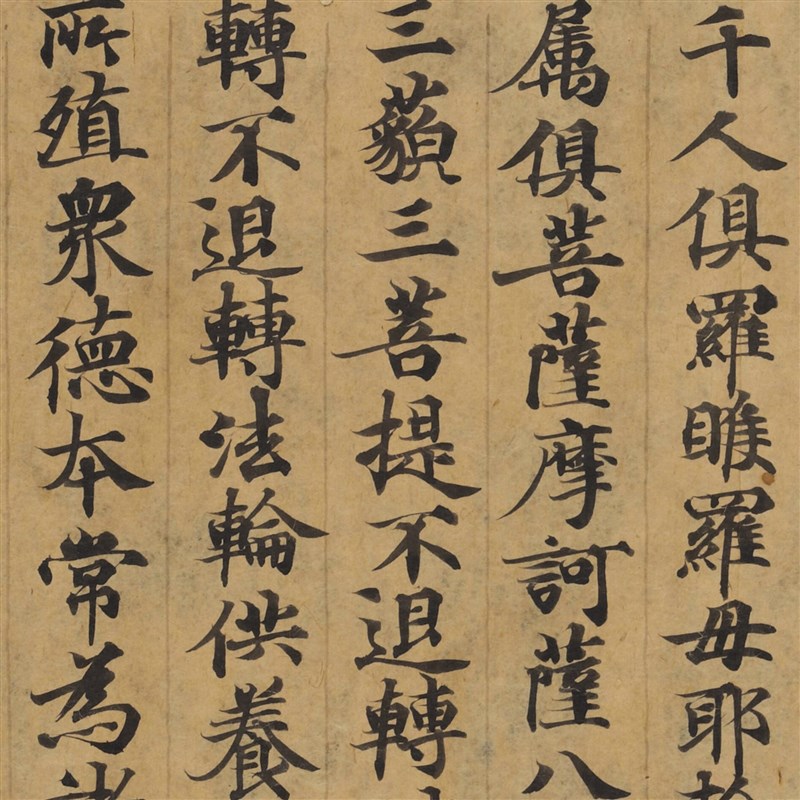 千人俱羅睺羅母耶
属俱菩薩摩訶薩八
三藐三菩提不退轉
轉不退轉法輪供養
所殖衆德本常為